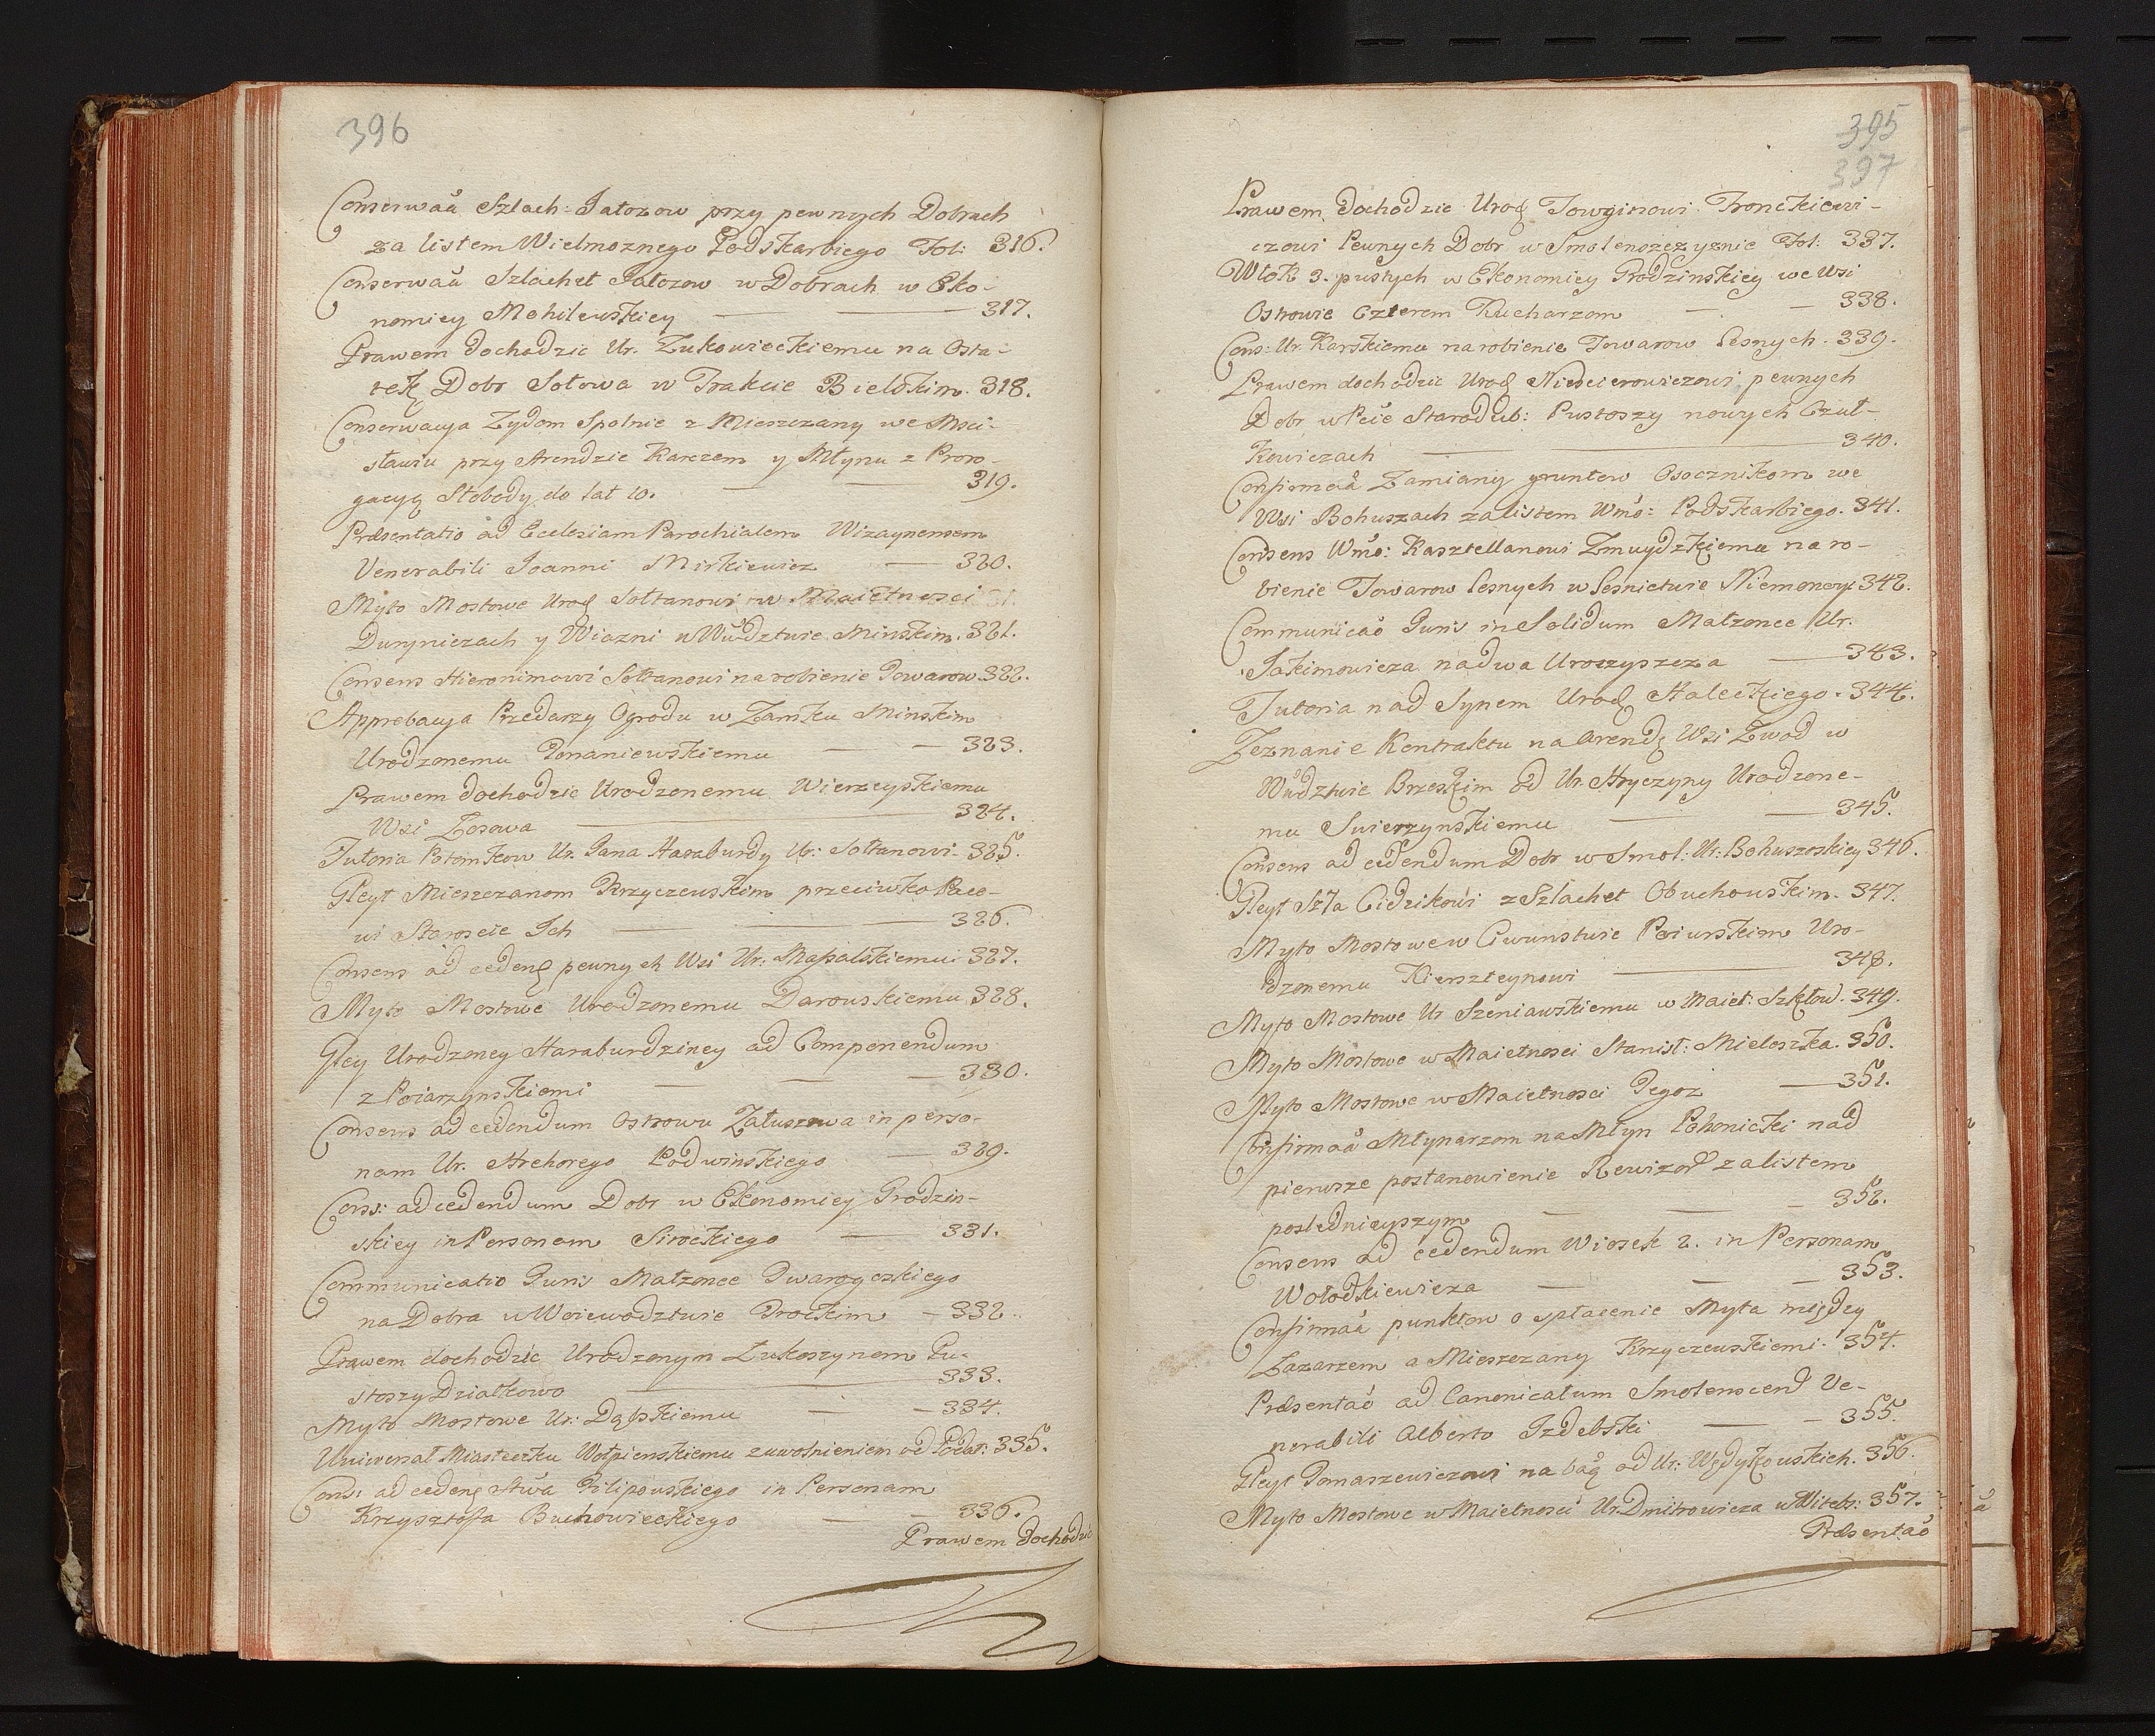 396
Conserwaã Szlach: Jatozow przy pewnych Dobrach
za listem Wielmoznego Podskarbiego Fol: 316.
Conserwaã Szlachet Jatozow w Dobrach w Eko-
nomiey Mohilewskiey 317.
Prawem dochodzic Ur. Zukowieckiemu na Osta-
tek Dobr Sołowa w Trakcie Bielskim. 318.
Conserwacya Zydom Spolnie z Mieszczany we Msci-
sławiu przy Arendzie Karczem y Młynu z Proro-
gacyą Słobody do lat 10. 319.
Præsentatio ad Ecclesiam Parochialem Wizaynensem
Venerabili Joanni Mirkiewicz 320.
Myto Mostowe Urod Sołtanowi w Maiętnosci
Duryniczach y Wiazni w Wudztwie Minskim. 321.
Consens Hieronimowi Sołtanowi na robienie Towarow. 322.
Approbacya Przedarzy Ogrodu w Zamku Minskim
Urodzonemu Romaniewskiemu 323.
Prawem dochodzic Urodzonemu Wierzeyskiemu
Wsi Zosowa 324.
Tutoria Potomkow Ur. Jana Haraburdy Ur: Sołtanowi. 325.
Gleyt Mieszczanom Krzyczewskim przeciwko Paco-
wi Staroscie Ich 326.
Consens ad cedend pewnych Wsi Ur: Massalskiemu 327.
Myto Mostowe Urodzonemu Darowskiemu 328.
Gley Urodzoney Haraburdziney ad Componendum
z Poiarzynskiemi 330.
Consens ad cedendum Ostrowu Załuszowa in perso-
nam Ur. Hrehorego Podwinskiego 329.
Cons: ad cedendum Dobr w Ekonomiey Grodzin-
skiey in Personam Sirockiego 331.
Communicatio Juris Małzonce Twarogoskiego
na Dobra w Woiewodztwie Trockim 332.
Prawem dochodzic Urodzonym Łukoszynom Pu-
stoszy Działkowo 333.
Myto Mostowe Ur: Dąbskiemu 334.
Uniwersał Miasteczku Wołpienskiemu z uwolnieniem od Podat: 335.
Cons: ad cedend Stwa Filipowskiego in Personam
Krzysztofa Buchowieckiego 336.
Prawem dochodzic
395
397
Prawem dochodzic Urod Towginowi Fronckiewi-
czowi Pewnych Dobr w Smolenszczyznie Fol: 337.
Włok 3. pustych w Ekonomiey Grodzinskiey we Wsi
Ostrowie Czterem Kucharzom 338.
Cons: Ur. Karskiemu na robienie Towarow lesnych. 339.
Prawem dochodzic Urod Niedcierowiczowi pewnych
Dobr w Pcie Starodub: Pustoszy nowych Czuł-
kowiczach 340.
Confirmaã Zamiany gruntow Osocznikom we
Wsi Bohuszach za listem Wmo: Podskarbiego. 341.
Consens Wmo: Kasztellanowi Zmuydzkiemu na ro-
bienie Towarow lesnych w lesnictwie Niemonoy. 342.
Communicaõ Juris in Solidum Małzonce Ur.
Jakimowicza na dwa Uroszyszcza 343.
Tutoria nad Synem Urod Haleckiego. 344.
Zeznanie Kontraktu na Arendę Wsi Zwod w
Wudztwie Brzeskim od Ur. Hryczyny Urodzone-
mu Swierzynskiemu 345.
Consens ad cedendum Dobr w Smol: Ur: Bohuszoskiey 346.
Gleyt Szla Cidzikowi z Szlachet Obuchowskim. 347.
Myto Mostowe w Ciwunstwie Poiurskim Uro-
dzonemu Kierszteynowi 348.
Myto Mostowe Ur Szeniawskiemu w Maięt: Szkłow. 349.
Myto Mostowe w Maiętnosci Stanisł: Mieleszka. 350.
Myto Mostowe w Maiętnosci Pegoz 351.
Confirmaã Młynarzom na Młyn Pohonicki nad
pierwsze postanowienie Rewizor z listem
posłednieyszym 352.
Consens ad cedendum Wiosek 2. in Personam
Wołodkiewicza 353.
Confirmaã punktow o spłacenie Myta między
Zazarzem a Mieszczany Krzyczewskiemi. 354.
Præsentaõ ad Canonicatum Smolenscen Ve-
nerabili Alberto Izdebski 355.
Gleyt Tomaszewiczowi na baą od Ur: Wędytkowskich. 356.
Myto Mostowe w Maiętnosci Ur. Dmitrowicza w Witeb: 357.
Præsentaõ